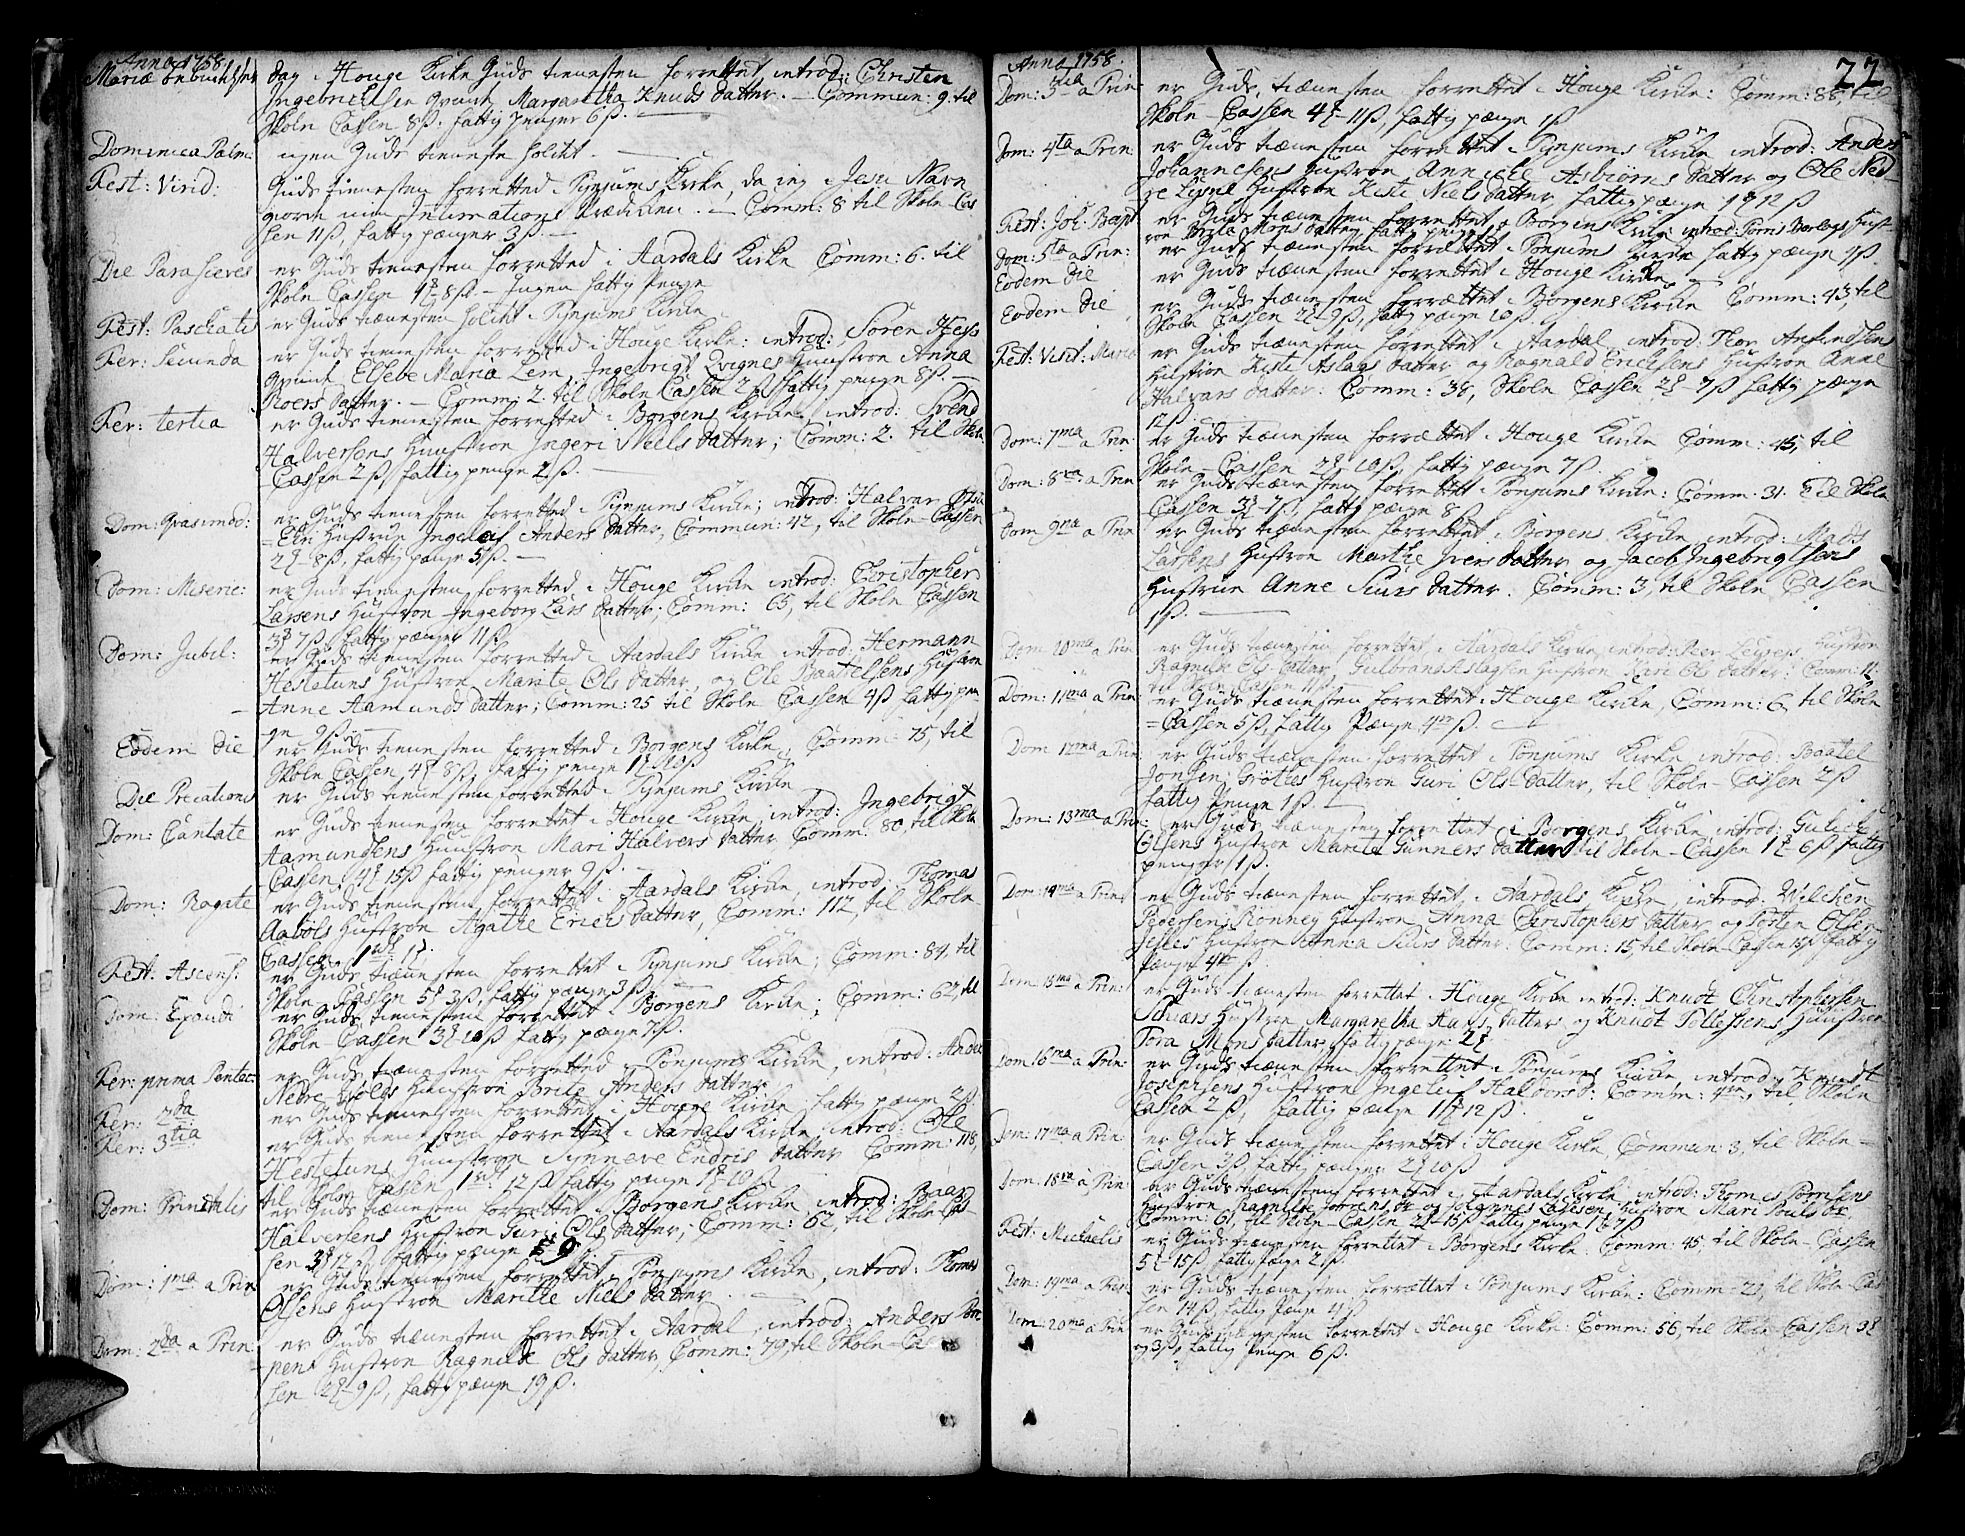 Anno 1758
Mariæ
dag i Houge Kirke Guds tienesten forrettet, introd: Christen
Ingebrichtsen Qvint Margaretha Knuds datter. — Commun: 9. til
Skoln Cassen 8ß. fattig penger 6ß.
Dominica Palm: ingen Guds tieneste holdt.
Fest: Virid: Guds tienesten forretted i Tynjums Kirke, da jeg i Jesu Navn
giorde min Intimations Prædiken. — Comm: 8 til Skoln Cas
sen 11ß, fattig pænger 3ß. —
Die Parasceves er Guds tienesten forretted i Aardals Kirke Comm: 6. til
Skoln Cassen 4 8ß — Ingen fattig Penge
Fest: Paschatis er Guds tienesten holdt i Tynjums Kirke.
Fer: Secunda er Guds tienesten forretted i Houge Kirke: introd: Sören Hess
Qvint Elsebe Maria Lem, Ingebrigt Qvignes Hustroe Anna
Roers datter. — Comm: 2. til Skoln Cassen 2ß fattig penge 8ß. —
Fer: tertia er Guds tienesten forretted i Borgens Kirke introd: Svend
Halversons Hustroe Ingeri Niels datter; Comm: 2. til Skoln
Cassen 2ß, fattig penge 2ß. —
Dom: Qvasimod: er Guds tienesten forretted i Tynjums Kirke; introd: Halver
Hustrue Ingeleif Anders datter, Commun: 42, til Skoln-Cassen
2 8ß, fattig penge 5ß. —
Dom: Miseric: er Guds tienesten forretted i Houge Kirke introd: Christopher
Larsens Hustroe Ingeborg Lars datter; Comm: 65, til Skoln Cassen
3 7ß, fattig pænger 11ß.
Dom: Jubil: er Guds tienesten forretted i Aardals Kirke introd: Hermann
Hestetuns Hustroe Marite Ols datter, og Ole Baatelsens Hustroe
Anne Aamunds datter; Comm: 25 til Skoln Cassen 4ß fattig pen
ge 9ß —
Eodem Die er Guds tienesten forretted i Borgens Kirke, Comm: 75, til
Skoln Cassen 4 8ß, fattig penge 1 10ß
Die Precations er Guds tienesten forretted i Tynjums Kirke
Dom: Cantate er Guds tienesten forrettet i Houge Kirke, introd: Ingebrigt
Aamundsens Hustroe Mari Halvers datter Comm: 80, til Skoln
-Cassen 4 15ß fattig penger 9ß. —
Dom: Rogate er Guds tienesten forrettet i Aardals Kirke, introd: Thomas
Aaböls Hustroe Agathe Erics datter, Comm: 112, til Skoln
Cassen 1
Fest: Ascens: er Guds tienesten forrettet i Tynjums Kirke; Comm: 84, til
Skoln Cassen 5 3ß, fattig pænge 3ß —
Dom: Exaudi er Guds tienesten forrettet i Borgens Kirke; Comm: 62, til
Skoln-Cassen 3 10ß fattig pænge 7ß.
Fer: prima Pentec: er Guds tienesten forretted i Tönjums Kirke, introd: Anders
Nedre Hustroe Brite Anders datter
Fer: 2da er Guds tienesten forretted i Houge Kirke fattig pænge 2ß
Fer: 3tia er Guds tienesten forrettet i Aardals Kirke, introd: Ole
Hestetuns Hustroe Synneve Endris datter Comm: 118,
til Skoln Cassen 1 12ß fattig penge 1 10ß
Dom: Trinitatis er Guds tienesten forrettet i Borgens Kirke introd:
Halversens Hustroe Guri Ols datter; Comm: 62, til Skoln-Cas
sen 3 12ß, fattig pænge 9.
Dom: 1ma a Trin: er Guds tienesten forrettet i Tönjums Kirke, introd: Thomas
Olsens Hustroe Maritte Niels datter. —
Dom: 2da a Trin: er Guds tienesten forrettet i Aardal, introd: Anders
Hustroe Ragnilde Ols datter, Comm: 79, til Skoln-Cas
sen 2 9ß, fattig pænge 19ß.
Anno 1758.
22
Dom: 3tia a Trin: er Guds tienesten forrettet i Houge Kirke: Comm: 88, til
Skoln-Cassen 4 11ß, fattig pænge 1ß
Dom: 4ta a Trin: er Guds tienesten forrettet i Tynjums Kirke introd: Anders
Johannesens Hustroe Anniche Asbiørns datter og Ole Ned
Hustroe Kisti Niels datter, fattig pænge 1 12ß
Fest: Joh: Bapt er Guds tienesten forrettet i Borgens Kirke introd: Hust
roe Mons datter, fattig penge
Dom: 5ta a Trin: er Guds tienesten forrettet i Tönjums Kirke fattig pænge 4ß.
Eodem Die er Guds tienesten forrettet i Houge Kirke, —
Eodem Die er Guds tienesten forrettet i Borgens Kirke Comm: 43, til
Skoln Cassen 2 9ß, fattig pænge 10ß.
Fest: Visit: Mariæ er Guds tienesten forrettet i Aardal, introd: Thor Anfindsen
Hustroe Kisti Aslags datter og Ragnald Ericksens Hustroe Anne
Halvars datter. Comm: 38, Skoln Cassen 2 7ß fattig pænge
12ß
Dom: 7ma a Trin: er Guds tienesten forrettet i Houge Kirke Comm: 45, til
Skoln-Cassen 2 10ß, fattig pænge 7ß.
Dom: 8va a Trin er Guds tienesten forrettet i Tönjums Kirke: Comm. 31. til Skoln
Cassen 3 7ß, fattig pænge 8ß
Dom: 9na a Trin er Guds tienesten forrettet i Borgens Kirke introd: Mads
Larsens Hustroe Marthe Ivers datter og Jacob Ingebrigtsens
Hustrue Anne Siurs datter. Comm: 3, til Skoln Cassen
1ß. —
Dom: 10ma a Trin er Guds tienesten forrettet i Aardals Kirke, introd: Peer Hustroe
Ragnilde Ols datter, Gulbrand Aslagsen Hustroe Kari Ols datter: Comm: 12.
til Skoln Cassen 11ß
Dom: 11ma a Trin: er Guds tienesten forrettet i Houge Kirke, Comm: 6, til Skoln
=Cassen 5ß, fattig Pænge 4ß.
Dom 12ma a Trin er Guds tienesten forrettet i Tönjums Kirke introd: Baatel
Jonsen Hustroe Guri Ols-datter, til Skoln-Cassen 2ß
fattig Penge 1ß. —
Dom: 13ma a Trin: er Guds tienesten forrettet i Borgens Kirke introd: Gulick
Olsens Hustroe Marite Gunners datter til Skoln-Cassen 1 6ß, fattig
penger 1ß.
Dom: 14ma a Trin: er Guds tienesten forrettet, i Aardals Kirke, introd: Wilchen
Pedersen Hustroe Anna Christophers datter og Tosten Olsen
Hustroe Anna Siurs datter: Comm: 15, til Skoln-Cassen 15ß fattig
Pænge 4ß.
Dom: 15ma a Trin: er Guds tienesten forrettet i Houge Kirke introd: Knudt Christophersen
Hustroe Margaretha datter og Knudt Tollessens Hustroe
Tora Mons datter, fattig pænge 2
Dom 16ma a Trin: er Guds tienesten forrettet i Tönjums Kirke, introd: Knudt
Josephsens Hustroe Ingelief Halvors d: Comm: 4, til Skoln
Cassen 2ß, fattig pænge 1 12ß.
Dom: 17ma a Trin: er Guds tienesten forrettet i Houge Kirke, Commun: 3, til Skoln=
Cassen 3ß, fattig pænger 2 10ß
Dom: 18va a Trin: er Guds tienesten forrettet i Aardals Kirke introd: Thomas
Hustroe Ragnilde og Johannes Hustroe Mari Pouls dr.
Comm: 61, til Skoln-Cassen 2 15ß fattig penge 1 7ß
Fest: Michaelis er Guds tienesten forrettet i Borgens Kirke. Comm: 45, til Skoln-Cassen
5 15ß, fattig Pænge 2ß.
Dom: 19na a Trin: er Guds tienesten forrettet i Tönjums Kirke: Comm= 29, til Skoln-Cas
sen 14ß, fattig Pænge 4ß
Dom: 20ma a Trin er Guds tienesten forrettet i Houge Kirke: Comm: 56, til Skoln-Cassen 3
og 3ß, fattig Penge 6ß.